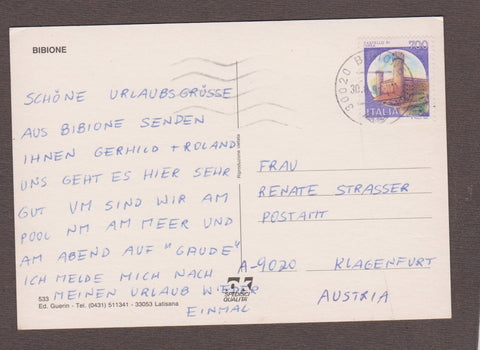 BIBIONE
SCHÖNE URLAUBSGRÜSSE
AUS BIBIONE SENDEN
IHNEN GERHILD + ROLAND
UNS GEHT ES HIER SEHR
GUT VM SIND WIR AM
POOL NM AM MEER UND
AM ABEND AUF "GAUDE"
ICH MELDE MICH NACH
MEINEN URLAUB WIEDER
EINMAL
533
Ed. Guerin - Tel. (0431) 511341 - 33053 Latisana
Riproduzione vietata
SPEDISCI
QUALITÀ
700
ITALIA
30020
30.
FRAU
RENATE STRASSER
POSTAMT
A-9020 KLAGENFURT
AUSTRIA